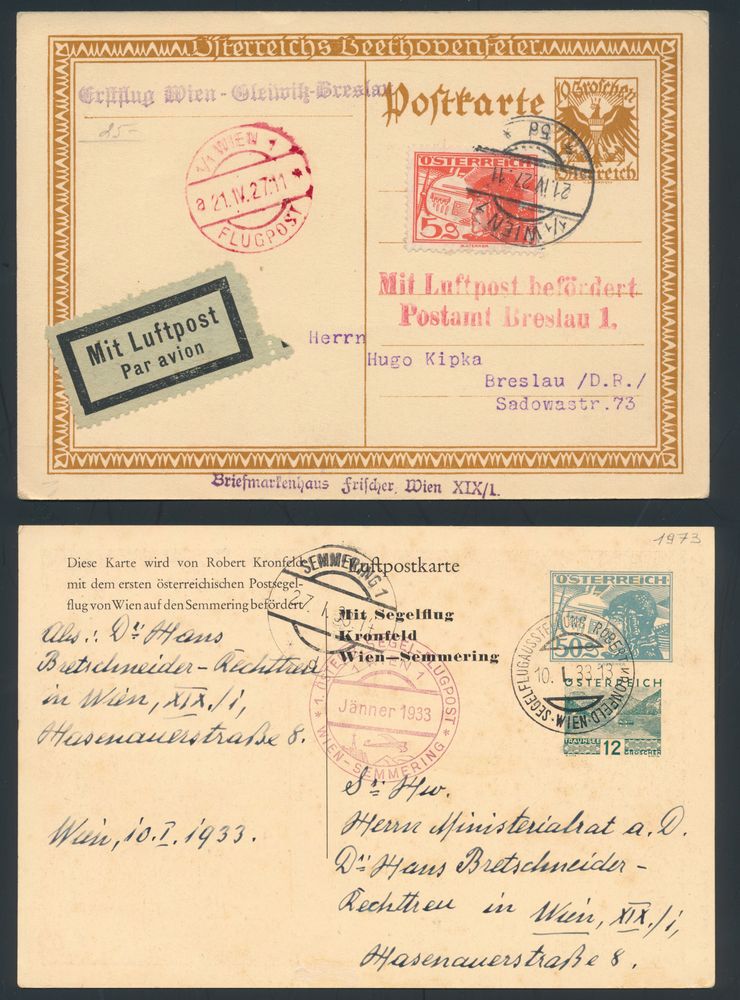 Österreichs Beethovenfeier
Erstflug Wien-Gleiwitz-Breslau
Postkarte
10 Groschen
Österreich
25-
1/1 WIEN 1
a 21.IV.27.11 *
FLUGPOST
ÖSTERREICH
5g
21.IV.27.11
1/1 WIEN 1
Mit Luftpost befördert
Postamt Breslau 1.
Mit Luftpost
Par avion
Herrn
Hugo Kipka
Breslau /D.R./
Sadowastr.73
Briefmarkenhaus Frischer, Wien XIX/1.
1973
Diese Karte wird von Robert Kronfeld
mit dem ersten österreichischen Postsegel-
flug von Wien auf den Semmering befördert.
Luftpostkarte
SEMMERING 1
27. I. 33
Mit Segelflug
Kronfeld
Wien-Semmering
ÖSTERREICH
50g
SEGELFLUGAUSSTELLUNG ROBERT KRONFELD · WIEN ·
10. I. 33.13
ÖSTERREICH
TRAUNSEE
12
GROSCHEN
SEGELFLUGPOST
WIEN 1
Jänner 1933
* WIEN-SEMMERING *
Abs.: Dr Hans
Bretschneider-Rechttreu
in Wien, XIX./1,
Hasenauerstraße 8.
Wien, 10.I.1933.
Sr. Hw.
Herrn Ministerialrat a. D.
Dr Hans Bretschneider-
Rechttreu in Wien, XIX./1,
Hasenauerstraße 8.